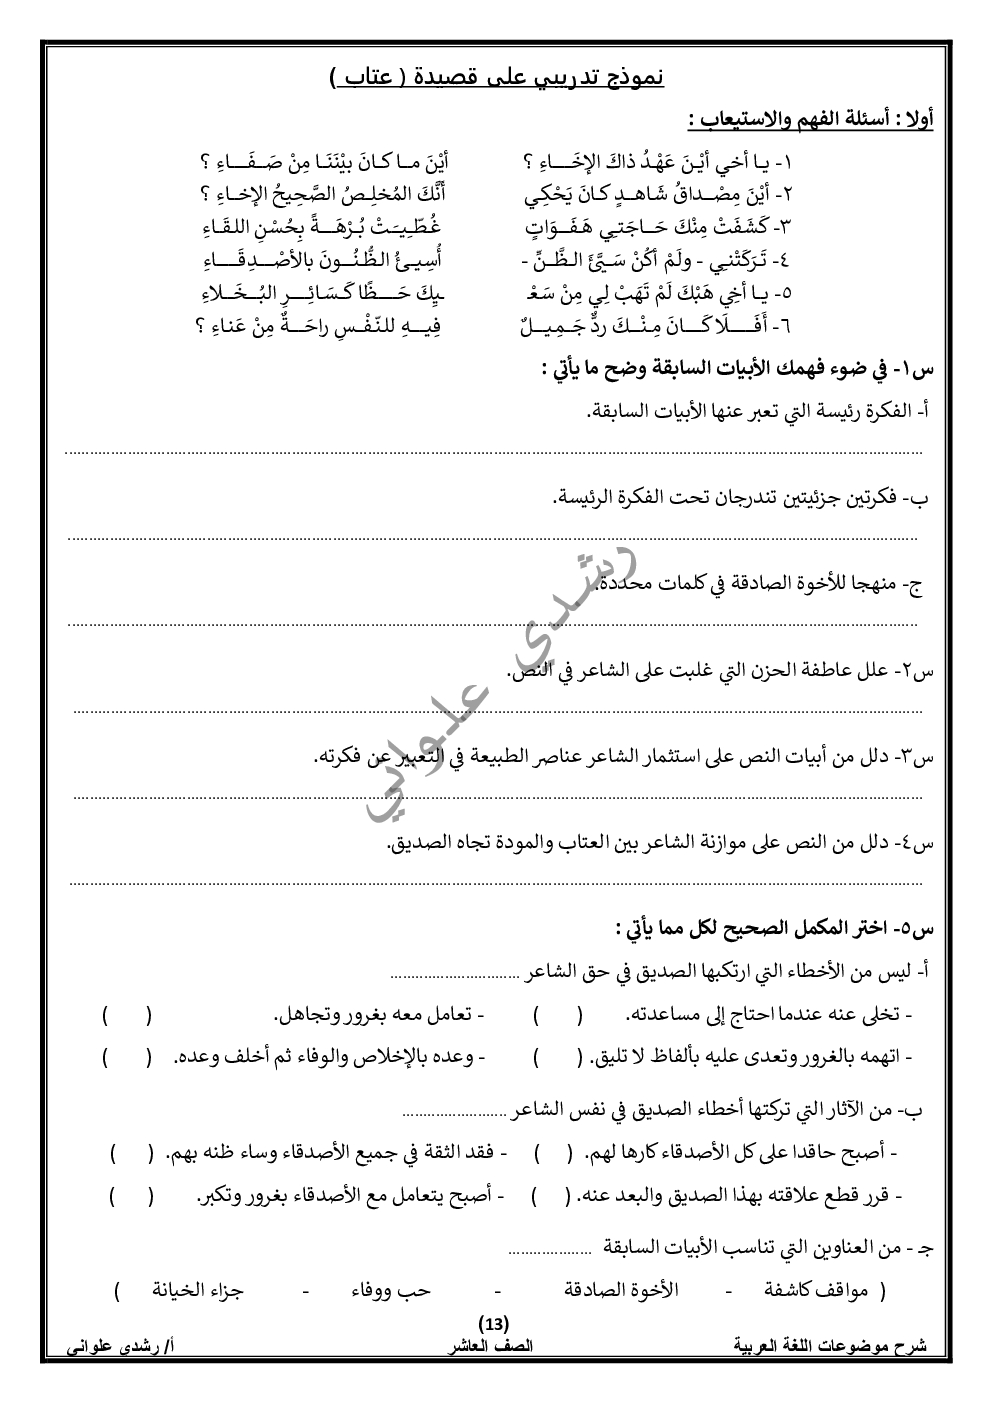 نموذج تدريبي على قصيدة ( عتاب )
أولا : أسئلة الفهم والاستيعاب :
١- يـا أخي أيْـنَ عَهْـدُ ذاكَ الإخَـــاءِ ؟ أيْنَ مــا كـانَ بيْنَنَـا مِنْ صَــفَـــاءِ ؟
٢- أيْنَ مِصْــداقُ شَـاهــدٍ كـانَ يَحْكِي أَنَّكَ المُخلِـصُ الصَّحِيحُ الإخـاءِ ؟
٣- كَشَفَتْ مِنْكَ حَــاجَتـِي هَفَــوَاتٍ غُطّـِيـَتْ بُـرْهَـــةً بِحُسْنِ اللقَـاءِ
٤- تَـرَكَتْنـِي - ولَمْ أكُنْ سَـيَّئَ الـظَّـنِّ - أُسِيـئُ الـظُّنُــونَ بالأصْـــدِقَــــاءِ
٥- يـا أخِي هَبْكَ لَمْ تَهَبْ لِي مِنْ سَعْـ ـيِكَ حَــــظًا كَـسَائِــــرِ البُــخَـــلاءِ
٦- أَفَـــــلَا كَــــانَ مِـنْــكَ ردٌّ جَــمِيــــلٌ فِيــــهِ للنّفْــسِ راحَــــةٌ مِنْ عَناءِ ؟
س١- في ضوء فهمك الأبيات السابقة وضح ما يأتي :
أ- الفكرة رئيسة التي تعبر عنها الأبيات السابقة.
ب- فكرتين جزئيتين تندرجان تحت الفكرة الرئيسة.
ج- منهجا للأخوة الصادقة في كلمات محددة.
س٢- علل عاطفة الحزن التي غلبت على الشاعر في النص.
س٣- دلل من أبيات النص على استثمار الشاعر عناصر الطبيعة في التعبير عن فكرته.
س٤- دلل من النص على موازنة الشاعر بين العتاب والمودة تجاه الصديق.
رشدي علواني
س٥- اختر المكمل الصحيح لكل مما يأتي :
أ- ليس من الأخطاء التي ارتكبها الصديق في حق الشاعر ...............................
- تخلى عنه عندما احتاج إلى مساعدته. ( ) - تعامل معه بغرور وتجاهل. ( )
- اتهمه بالغرور وتعدى عليه بألفاظ لا تليق. ( ) - وعده بالإخلاص والوفاء ثم أخلف وعده. ( )
ب- من الآثار التي تركتها أخطاء الصديق في نفس الشاعر .........................
- أصبح حاقدا على كل الأصدقاء كارها لهم. ( ) - فقد الثقة في جميع الأصدقاء وساء ظنه بهم. ( )
- قرر قطع علاقته بهذا الصديق والبعد عنه. ( ) - أصبح يتعامل مع الأصدقاء بغرور وتكبر. ( )
جـ - من العناوين التي تناسب الأبيات السابقة ....................
( مواقف كاشفة - الأخوة الصادقة - حب ووفاء - جزاء الخيانة )
(13)
شرح موضوعات اللغة العربية الصف العاشر أ/ رشدي علواني